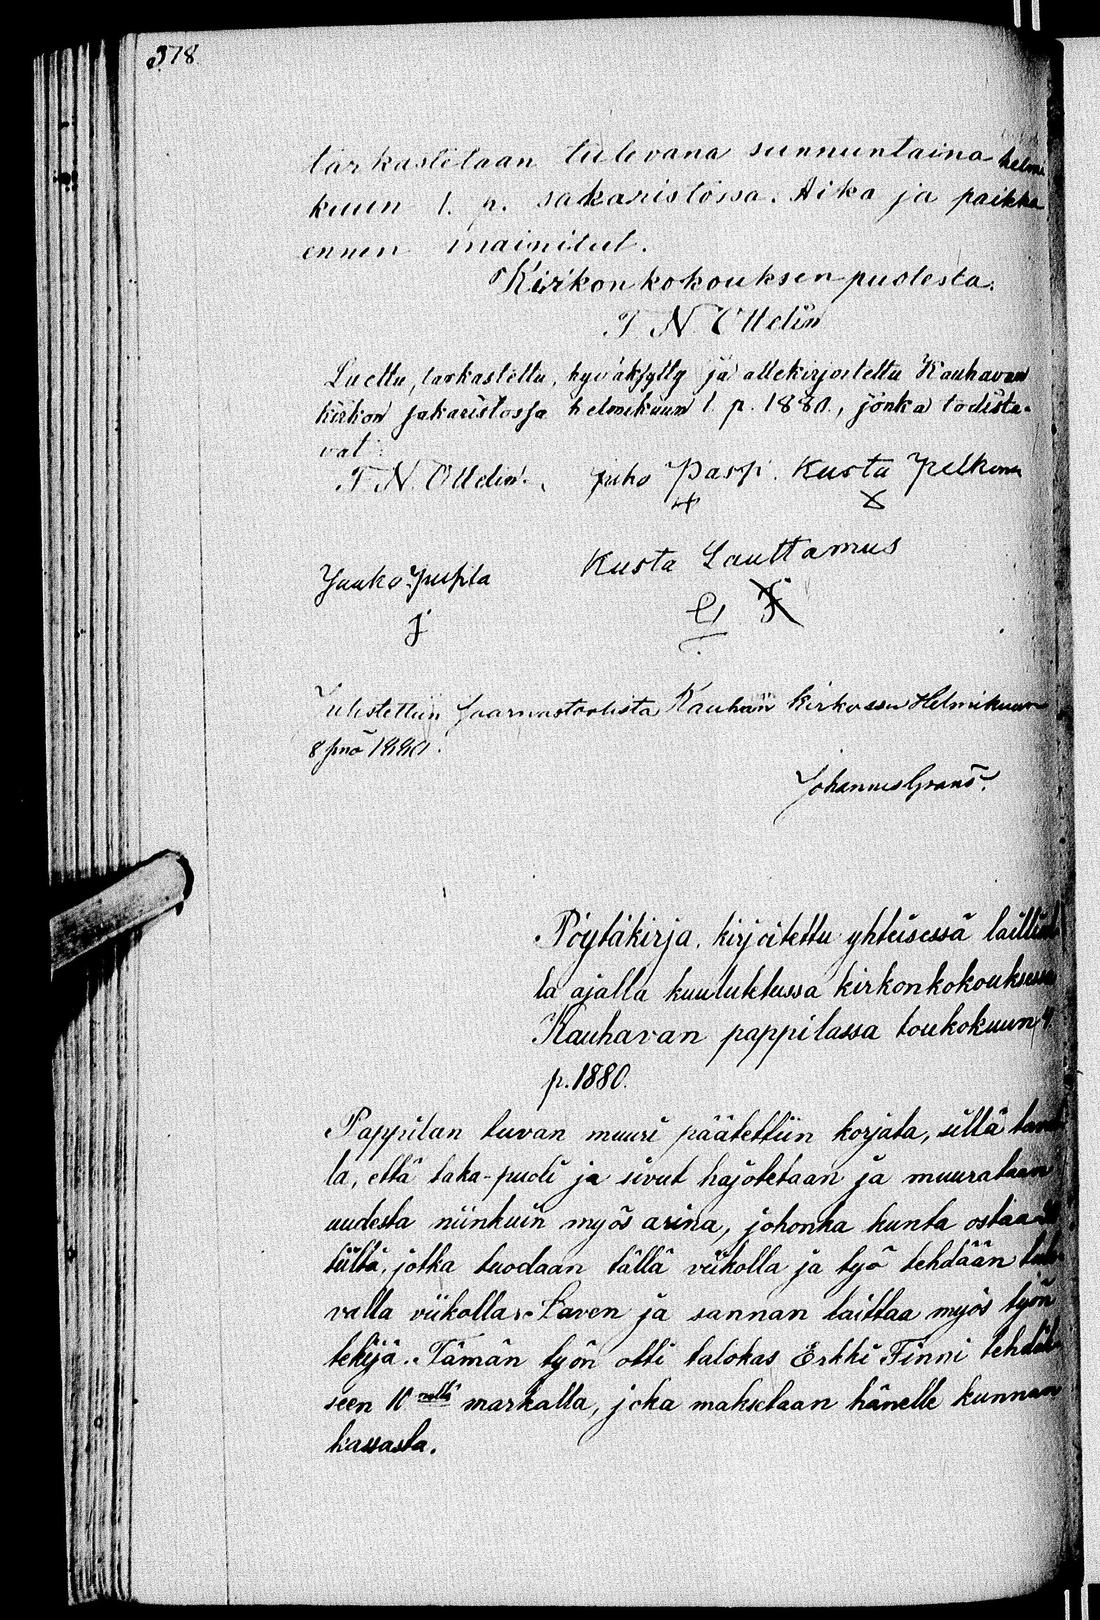 378.
tarkastetaan tulevana sunnuntaina helmi
kuun 1. p. sakaristossa. Aika ja paikka
ennen mainitut.
Kirkonkokouksen puolesta.
T. N. Odelin
Luettu, tarkastettu, hyväksytty ja allekirjoitettu Kauhavan
kirkon sakaristossa helmikuun 1 p. 1880, jonka todista-
vat:
T. N. Odelin. Juho Passi. Kusta
Jaako Kusta Lauttamus
Julistettiin Saarnastoolista Kauhan kirkossa Helmikuun
8 pnä 1880.
Johannes Granö.
Pöytäkirja, kirjoitettu yhteisessä laillisel
la ajalla kuulutetussa kirkonkokouksessa
Kauhavan pappilassa toukokuun 4
p. 1880.
Pappilan tuvan muuri päätettiin korjata, sillä taval
la, että taka-puoli ja sivut hajotetaan ja muurataan
uudesta niinkuin myös arina, johonka kunta ostaa
tiiltä, jotka tuodaan tällä viikolla ja työ tehdään tule
valla viikolla. Saven ja sannan laittaa myös työn
tekijä. Tämän työn otti talokas Erkki Finni tehdäk
seen 10 nellä markalla, joka maksetaan hänelle kunnan
kassasta.